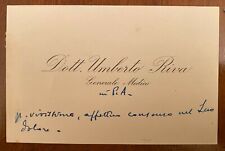 Dott. Umberto Riva
Generale Medico
in P.A.
affettuoso consenso nel Suo
dolore.